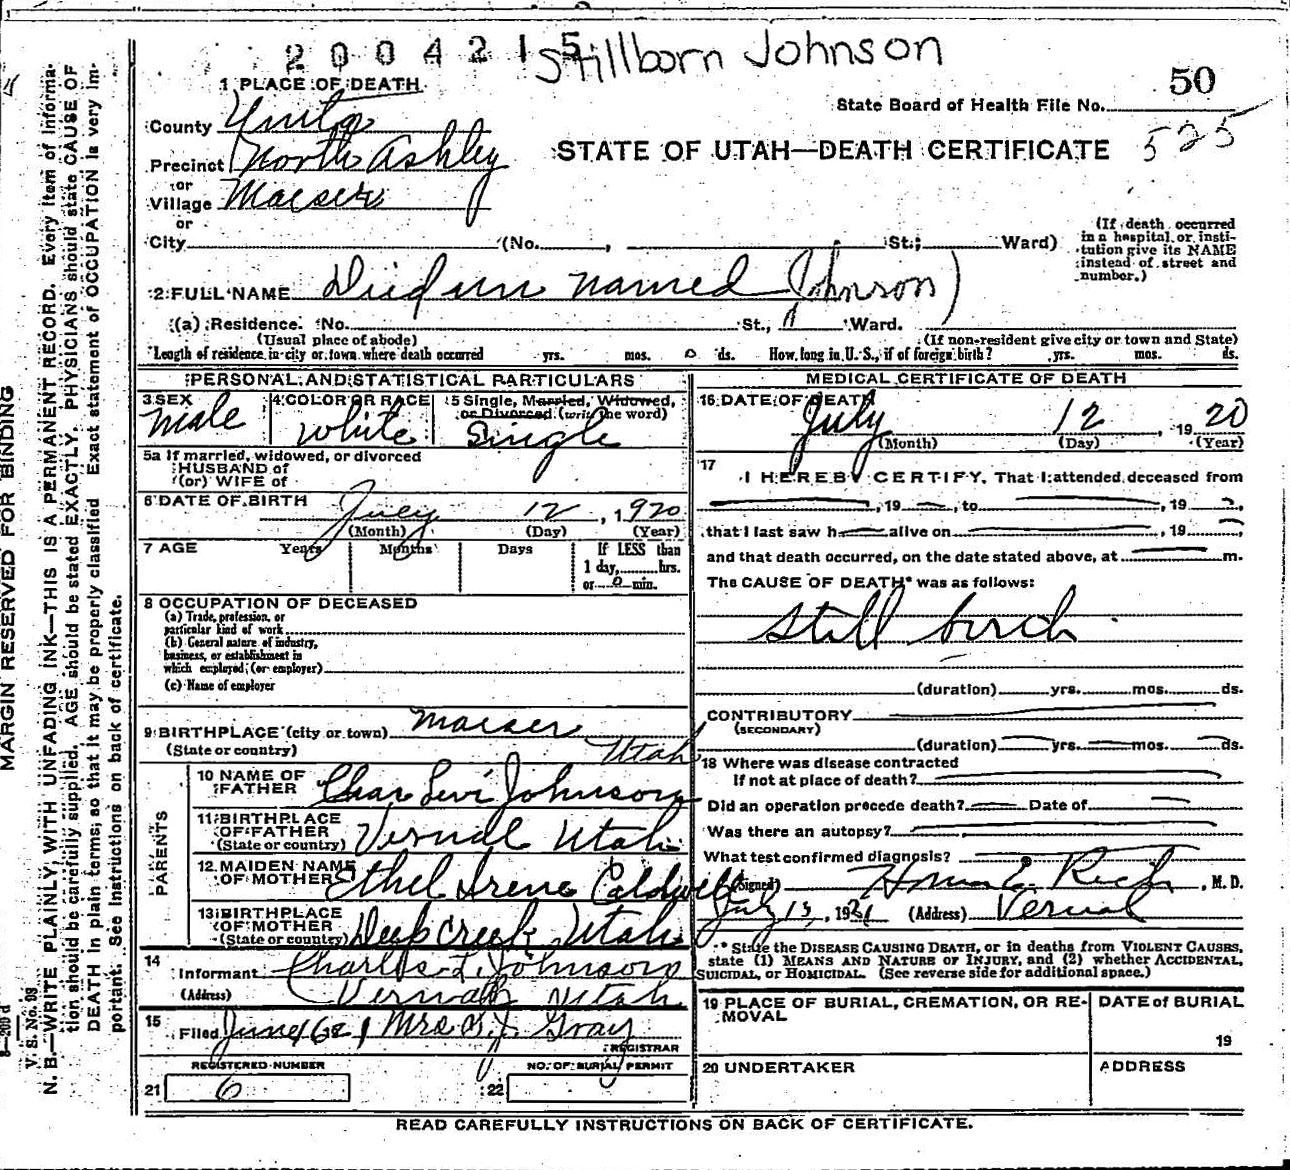 2004215
Stillborn Johnson
50
State Board of Health File No.
525
1 PLACE OF DEATH
County Uinta
STATE OF UTAH—DEATH CERTIFICATE
Precinct North Ashley
or
Village Maeser
or
City (No. , St.; Ward)
(If death occurred in a hospital or institution give its NAME instead of street and number.)
2 FULL NAME Died un named Johnson)
(a) Residence. No. St., Ward.
(Usual place of abode) (If non-resident give city or town and State)
Length of residence in city or town where death occurred yrs. mos. 0 ds. How long in U. S., if of foreign birth? yrs. mos. ds.
PERSONAL AND STATISTICAL PARTICULARS
3 SEX Male
4 COLOR OR RACE White
5 Single, Married, Widowed, or Divorced (write the word) Single
5a If married, widowed, or divorced
HUSBAND of
(or) WIFE of
6 DATE OF BIRTH July 12, 1920
(Month) (Day) (Year)
7 AGE Years Months Days If LESS than 1 day, hrs. or 0 min.
8 OCCUPATION OF DECEASED
(a) Trade, profession, or
particular kind of work
(b) General nature of industry,
business, or establishment in
which employed (or employer)
(c) Name of employer
9 BIRTHPLACE (city or town) Maeser
(State or country) Utah
PARENTS
10 NAME OF FATHER Chas Levi Johnson
11 BIRTHPLACE OF FATHER (State or country) Vernal Utah
12 MAIDEN NAME OF MOTHER Ethel Irene Caldwell
13 BIRTHPLACE OF MOTHER (State or country) Deep Creek Utah
14 Informant Charles L. Johnson
(Address) Vernal Utah
15 Filed June Mrs Gray
REGISTRAR
REGISTERED NUMBER
21 6
NO. OF BURIAL PERMIT
22
MEDICAL CERTIFICATE OF DEATH
16 DATE OF DEATH July 12, 1920
(Month) (Day) (Year)
17 I HEREBY CERTIFY, That I attended deceased from
, 19 , to , 19 ,
that I last saw h alive on , 19 ,
and that death occurred, on the date stated above, at m.
The CAUSE OF DEATH* was as follows:
Still birth
(duration) yrs. mos. ds.
CONTRIBUTORY
(SECONDARY)
(duration) yrs. mos. ds.
18 Where was disease contracted
If not at place of death?
Did an operation precede death? Date of
Was there an autopsy?
What test confirmed diagnosis?
(Signed) Homer E Rich, M. D.
July 13, 1921 (Address) Vernal
* State the DISEASE CAUSING DEATH, or in deaths from VIOLENT CAUSES,
state (1) MEANS AND NATURE OF INJURY, and (2) whether ACCIDENTAL,
SUICIDAL, or HOMICIDAL. (See reverse side for additional space.)
19 PLACE OF BURIAL, CREMATION, OR REMOVAL
DATE of BURIAL
19
20 UNDERTAKER
ADDRESS
READ CAREFULLY INSTRUCTIONS ON BACK OF CERTIFICATE.
MARGIN RESERVED FOR BINDING
V. S. No. 98
N. B.—WRITE PLAINLY, WITH UNFADING INK—THIS IS A PERMANENT RECORD. Every item of information should be carefully supplied. AGE should be stated EXACTLY. PHYSICIANS should state CAUSE OF DEATH in plain terms, so that it may be properly classified. Exact statement of OCCUPATION is very important. See instructions on back of certificate.